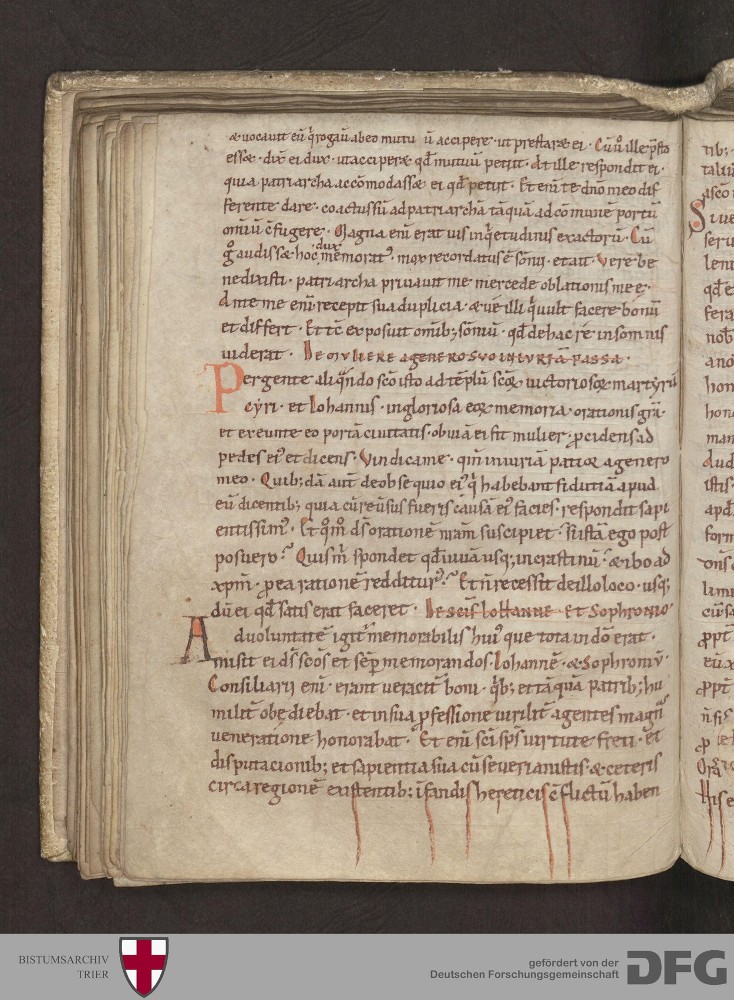 & uocauit eū q̇rogauī abeo mutuū accipere · ut prestaret ei · Cū u̇ ille p̄sto
esset · dix̄ ei dux · ut acciperet qđ mutuū petiit · At ille respondit ei ·
quia patriarcha accōmodasset ei qđ petiit · Et enī te dn̄o meo dif
ferente dare · coactus sū ad patriarchā tāquā ad cōmunē portū
omiū c̄fugere · Magna enī erat uis inq̇etudinis exactorū · Cū
g̊ audisset hoc dux memorat᷒ · mox recordatus ē sōnii · et ait · Vere be
nedixisti · patriarcha priuauit me mercede oblationis meę ·
Ante me enī recepit sua duplicia · & ue illi q̇ uult facere bonū
et differt · Et tc̄ exposuit omīb; sōniū · qđ de hac rē in somnis
uiderat · De muliere a genero suo iniuriā passa ·
Pergente aliq̇ndo sc̄o isto ad tēplū sc̄oꝝ uictoriosoꝝ martyrū
cẏri · et Iohannis · in gloriosa eoꝝ memoria · orationis grā ·
et exeunte eo portā ciuitatis · obuiā ei fit mulier · procidens ad
pedes ei᷒ et dicens · Vindica me · qm̄ iniuriā patior a genero
meo · Quib; dā aut̄ de obsequio ei᷒ q̇ habebant fiduciā apud
eū dicentib; quia cū reuersus fueris causā ei᷒ facies · respondit sapi
entissim᷒ · Et q̊m̊ dš orationē mēam suscipiet · si istā ego post
posuero ? Quis m̄ spondet qđ uiuā usq; in crastinū ? & ibo ad
xpm̄ · pro ea rationē redditur᷒ ? Et n̄ recessit de illo loco · usq;
dū ei qđ satis erat faceret · De sc̄is Iohanne · et Sophronio ·
Ad uoluntatē igit̄ memorabilis hui᷒ que tota in dō erat ·
misit ei dš sc̄os et sēp memorandos Iohannē · & Sophroniū ·
Consiliarii enī · erant ueracit̄ boni · q̇b; et tāquā patrib; hu
milit̄ obediebat · et in sua professione uirilit̄ agentes magna
ueneratione honorabat · Et enī sc̄i sp̄s uirtute freti · et
disputacionib; et sapientia sua cū seuerianistis · & ceteris
circa regionē existentib; īfandis hereticis c̄flictū haben
BISTUMSARCHIV
TRIER
gefördert von der
Deutschen Forschungsgemeinschaft
DFG